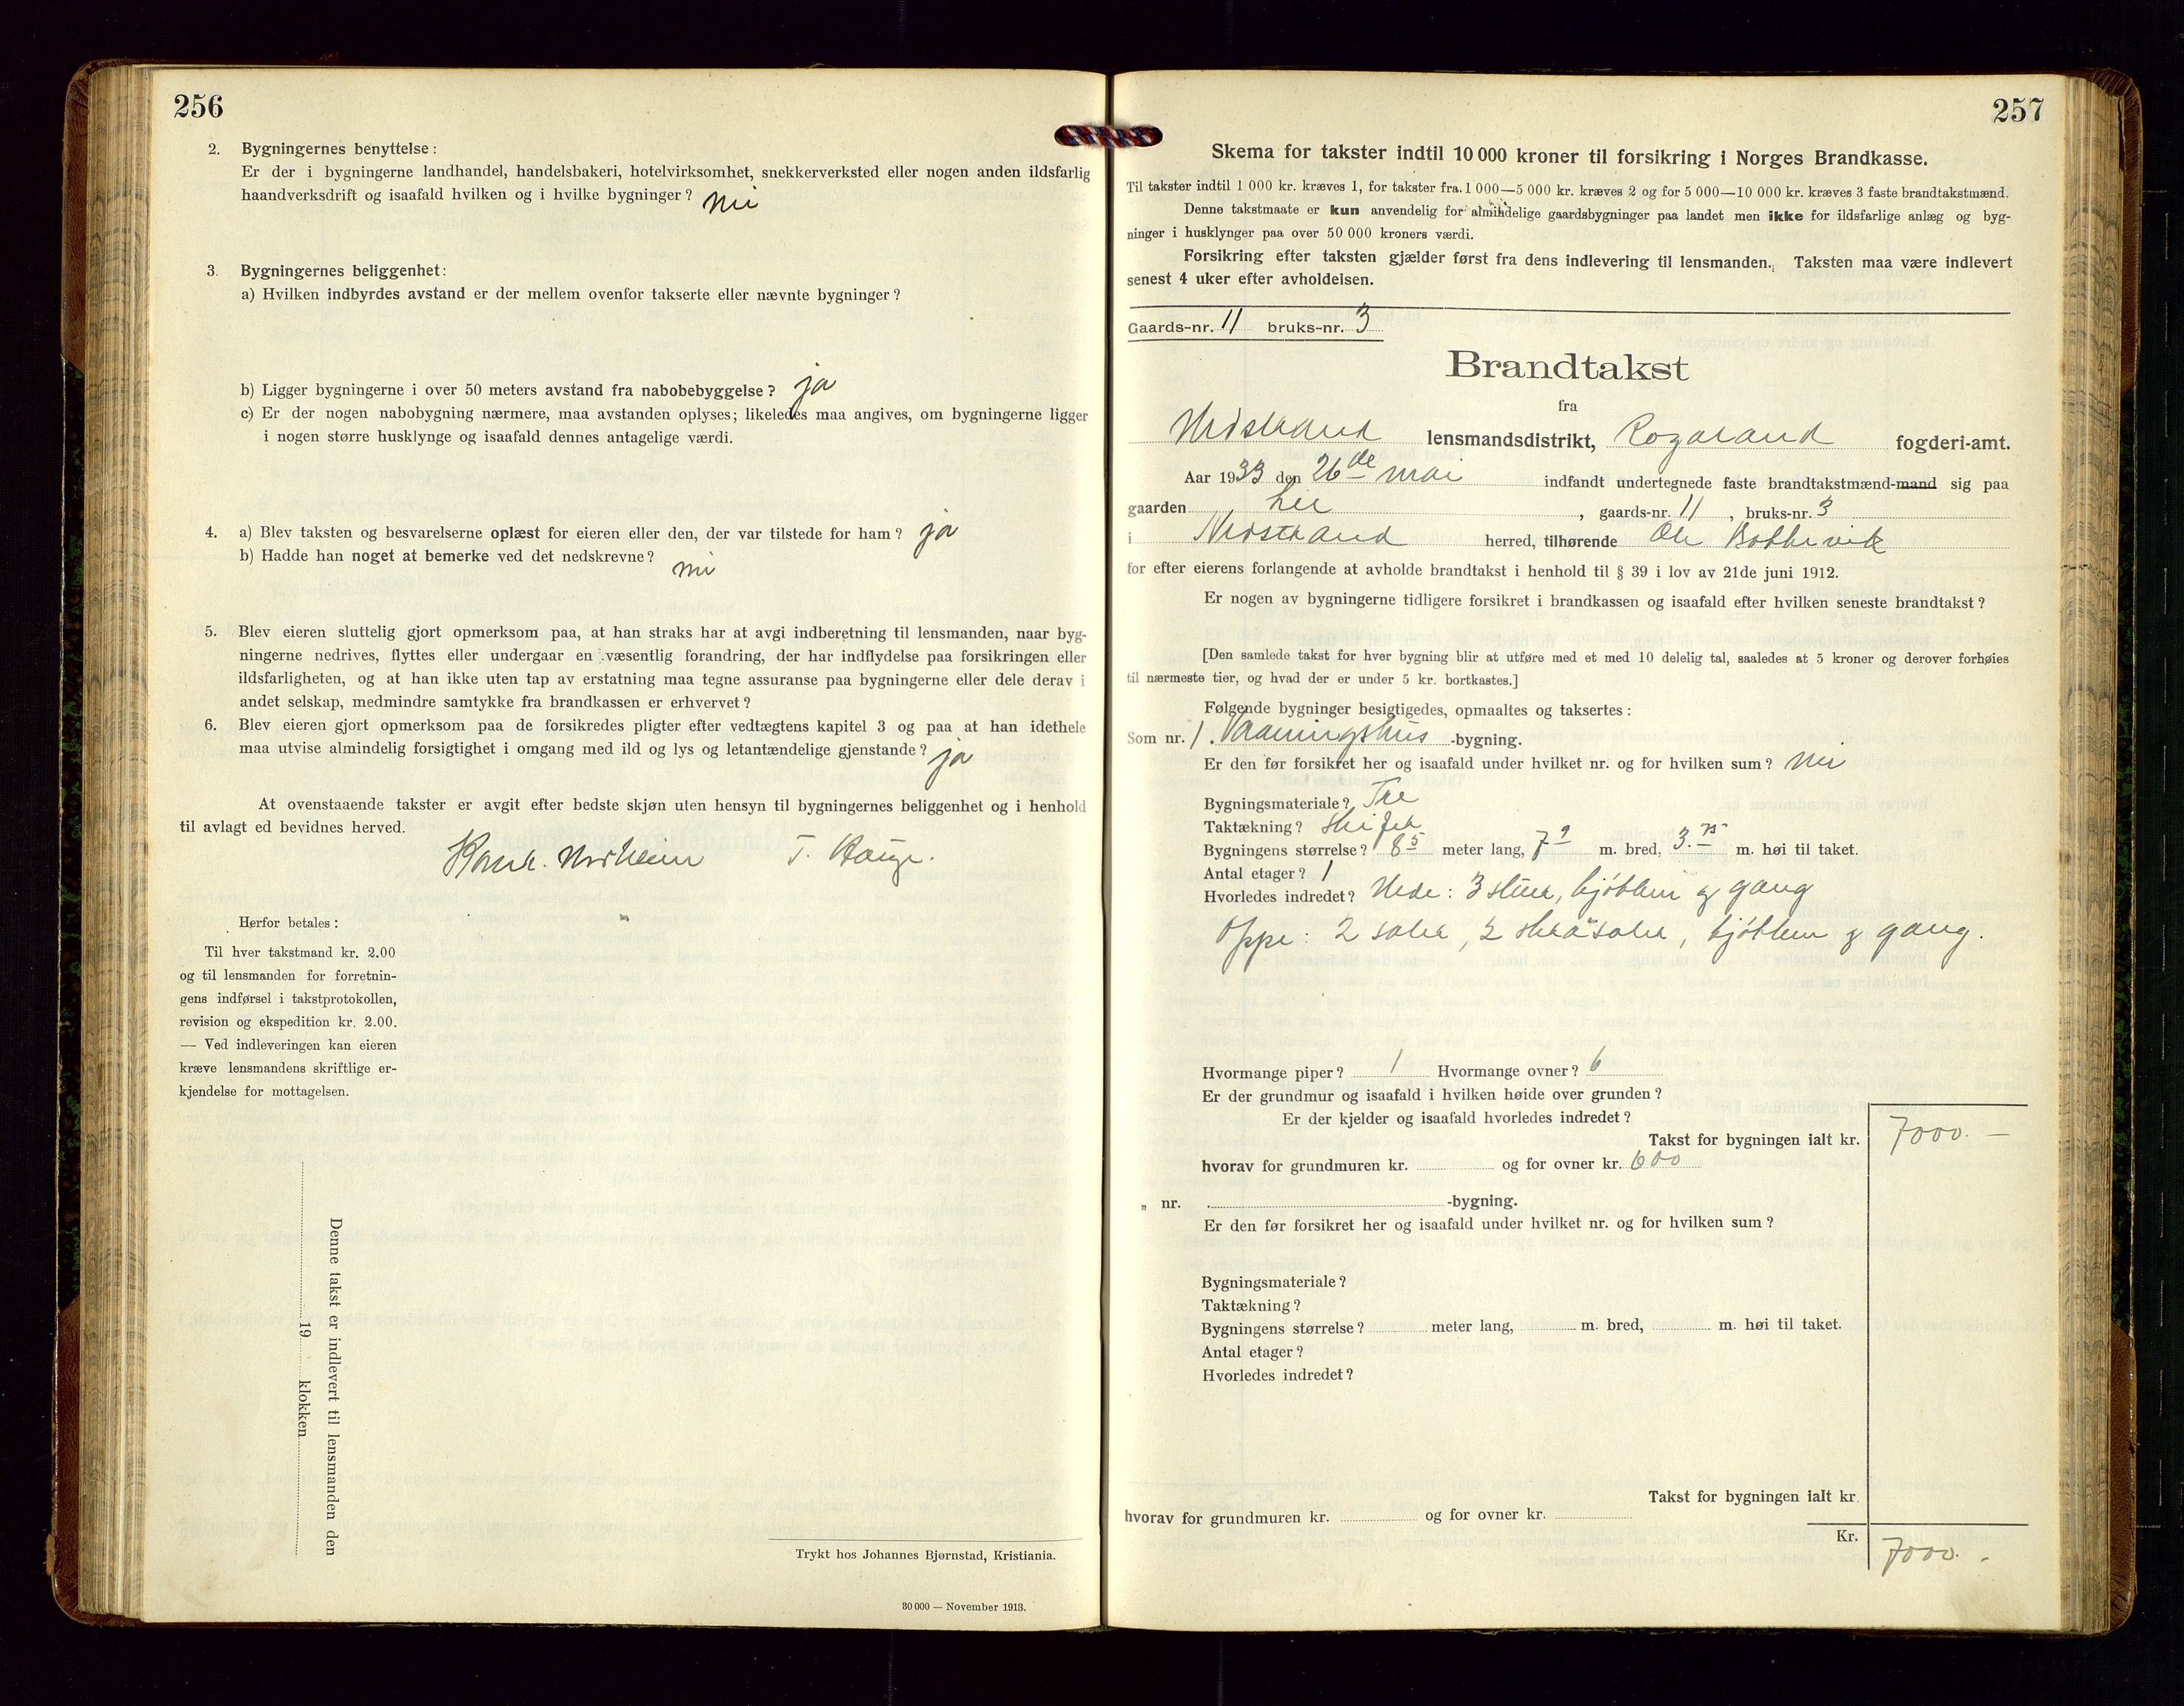 256
2. Bygningernes benyttelse:
Er der i bygningerne landhandel, handelsbakeri, hotelvirksomhet, snekkerverksted eller nogen anden ildsfarlig
haandverksdrift og isaafald hvilken og i hvilke bygninger? nei
3. Bygningernes beliggenhet:
a) Hvilken indbyrdes avstand er der mellem ovenfor takserte eller nævnte bygninger?
b) Ligger bygningerne i over 50 meters avstand fra nabobebyggelse? ja
c) Er der nogen nabobygning nærmere, maa avstanden oplyses; likeledes maa angives, om bygningerne ligger
i nogen større husklynge og isaafald dennes antagelige værdi.
4. a) Blev taksten og besvarelserne oplæst for eieren eller den, der var tilstede for ham? ja
b) Hadde han noget at bemerke ved det nedskrevne? nei
5. Blev eieren sluttelig gjort opmerksom paa, at han straks har at avgi indberetning til lensmanden, naar byg-
ningerne nedrives, flyttes eller undergaar en væsentlig forandring, der har indflydelse paa forsikringen eller
ildsfarligheten, og at han ikke uten tap av erstatning maa tegne assuranse paa bygningerne eller dele derav i
andet selskap, medmindre samtykke fra brandkassen er erhvervet?
6. Blev eieren gjort opmerksom paa de forsikredes pligter efter vedtægtens kapitel 3 og paa at han idethele
maa utvise almindelig forsigtighet i omgang med ild og lys og letantændelige gjenstande? ja
At ovenstaaende takster er avgit efter bedste skjøn uten hensyn til bygningernes beliggenhet og i henhold
til avlagt ed bevidnes herved.
T. Hauge.
Herfor betales:
Til hver takstmand kr. 2.00
og til lensmanden for forretnin-
gens indførsel i takstprotokollen,
revision og ekspedition kr. 2.00.
— Ved indleveringen kan eieren
kræve lensmandens skriftlige er-
kjendelse for mottagelsen.
Denne takst er indlevert til lensmanden den
19 klokken
Trykt hos Johannes Bjørnstad, Kristiania.
30 000 — November 1913.
257
Skema for takster indtil 10 000 kroner til forsikring i Norges Brandkasse.
Til takster indtil 1 000 kr. kræves 1, for takster fra 1 000—5 000 kr. kræves 2 og for 5 000—10 000 kr. kræves 3 faste brandtakstmænd.
Denne takstmaate er kun anvendelig for almindelige gaardsbygninger paa landet men ikke for ildsfarlige anlæg og byg-
ninger i husklynger paa over 50 000 kroners værdi.
Forsikring efter taksten gjælder først fra dens indlevering til lensmanden. Taksten maa være indlevert
senest 4 uker efter avholdelsen.
Gaards-nr. 11 bruks-nr. 3
Brandtakst
fra
Nedstrand lensmandsdistrikt, Rogaland fogderi-amt.
Aar 1933 den 26de mai indfandt undertegnede faste brandtakstmænd-mand sig paa
gaarden Lie, gaards-nr. 11, bruks-nr. 3
i Nedstrand herred, tilhørende Ole
for efter eierens forlangende at avholde brandtakst i henhold til § 39 i lov av 21de juni 1912.
Er nogen av bygningerne tidligere forsikret i brandkassen og isaafald efter hvilken seneste brandtakst?
[Den samlede takst for hver bygning blir at utføre med et med 10 delelig tal, saaledes at 5 kroner og derover forhøies
til nærmeste tier, og hvad der er under 5 kr. bortkastes.]
Følgende bygninger besigtigedes, opmaaltes og taksertes:
Som nr. 1. Vaaningshus -bygning.
Er den før forsikret her og isaafald under hvilket nr. og for hvilken sum? nei
Bygningsmateriale? Tre
Taktækning? Skifer
Bygningens størrelse? 8 5 meter lang, 7 m. bred, 3.75 m. høi til taket.
Antal etager? 1
Hvorledes indredet? Nede: 3 stuer, kjökken og gang
Oppe: 2 saler, 2 skråsaler, kjökken og gang.
Hvormange piper? 1 Hvormange ovner? 6
Er der grundmur og isaafald i hvilken høide over grunden?
Er der kjelder og isaafald hvorledes indredet?
Takst for bygningen ialt kr. 7000. —
hvorav for grundmuren kr. og for ovner kr. 600
„ nr. -bygning.
Er den før forsikret her og isaafald under hvilket nr. og for hvilken sum?
Bygningsmateriale?
Taktækning?
Bygningens størrelse? meter lang, m. bred, m. høi til taket.
Antal etager?
Hvorledes indredet?
Takst for bygningen ialt kr.
hvorav for grundmuren kr. og for ovner kr.
Kr. 7000. -